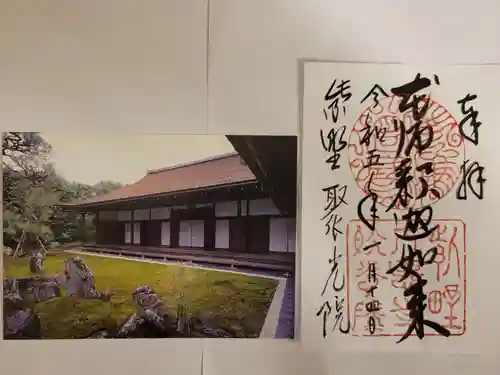 奉拝
本師釈迦如来
令和五年一月十四日
紫野 聚光院